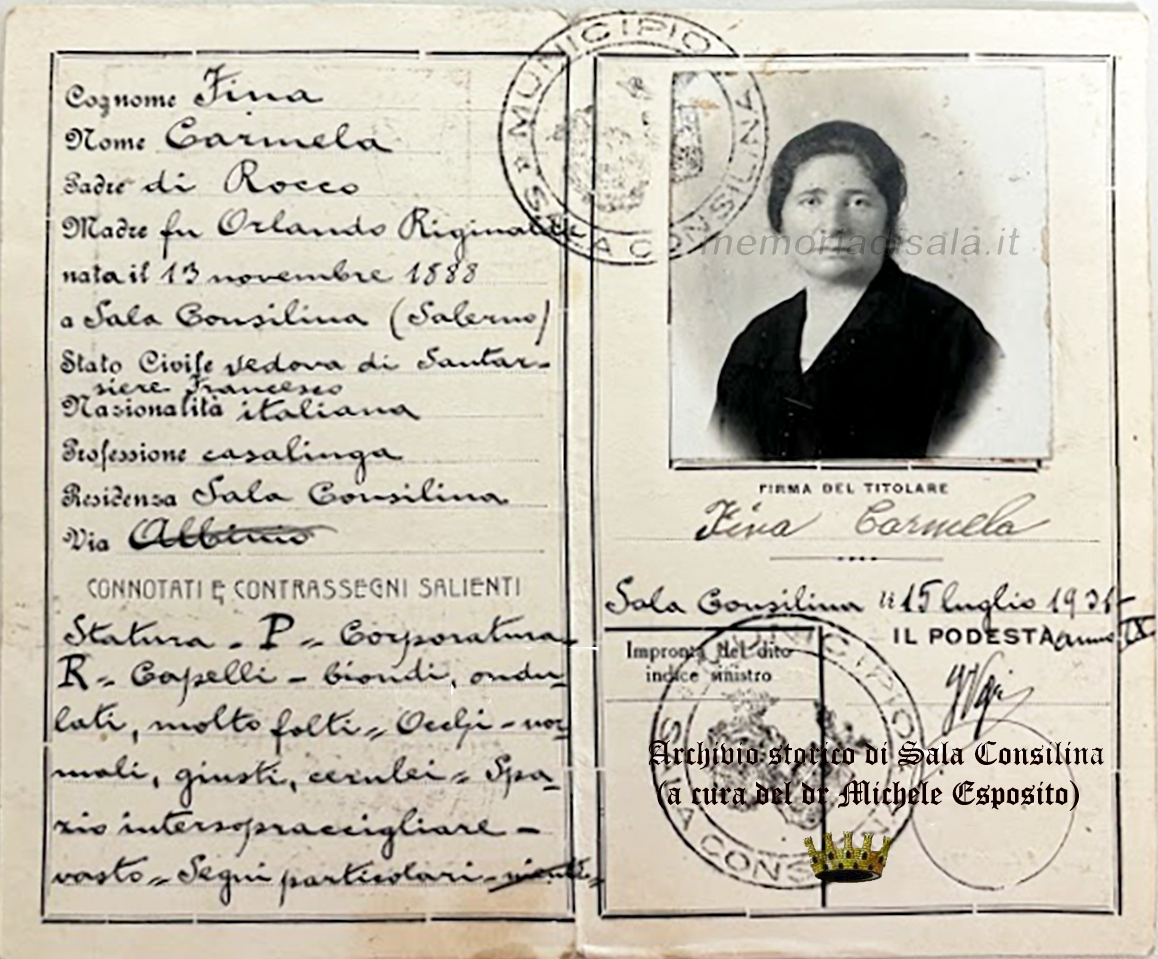 Cognome Fina
Nome Carmela
Padre di Rocco
Madre fu Orlando
nata il 13 novembre 1888
a Sala Consilina (Salerno)
Stato Civile vedova di Santar-
siere Francesco
Nazionalità italiana
Professione casalinga
Residenza Sala Consilina
Via Albinio
CONNOTATI E CONTRASSEGNI SALIENTI
Statura - P = Corporatura -
R = Capelli - biondi, ondu-
lati, molto folti = Occhi - nor
mali, giusti, cerulei = Spa-
zio intersopraccigliare -
vasto = Segni particolari - niente =
MUNICIPIO
SALA CONSILINA
memoriadisala.it
FIRMA DEL TITOLARE
Fina Carmela
Sala Consilina li 15 luglio 1931
IL PODESTÀ anno IX
Impronta del dito
indice sinistro
MUNICIPIO
SALA CONSILINA
Archivio storico di Sala Consilina
(a cura del dr Michele Esposito)